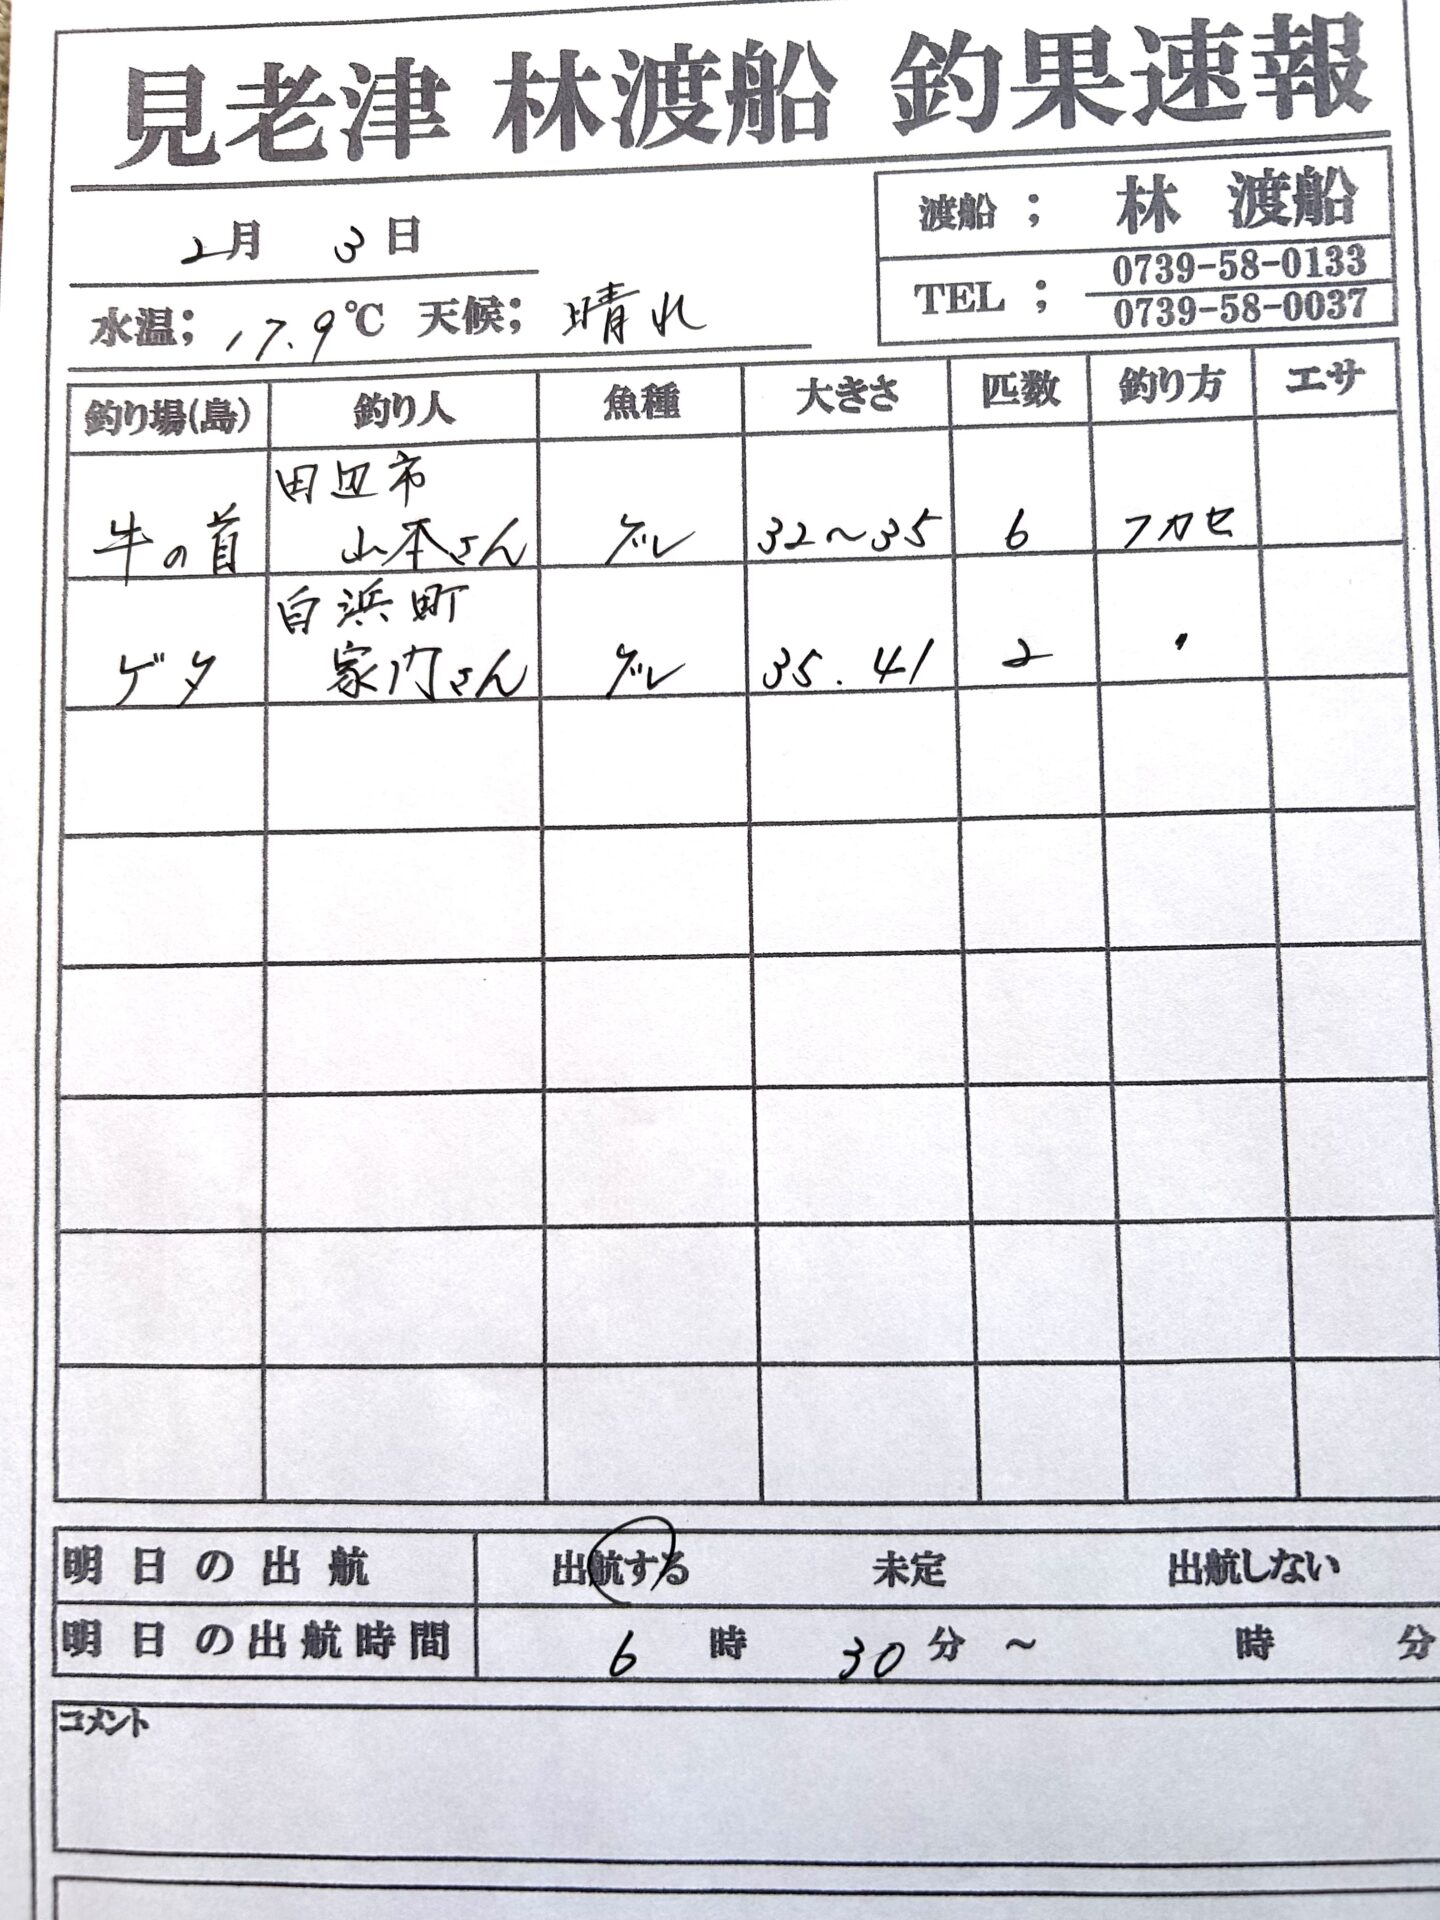 見老津 林渡船 釣果速報
渡船 ; 林 渡船
TEL ; 0739-58-0133
0739-58-0037
2月 3日
水温; 17.9℃ 天候; 晴れ
釣り場(島) 釣り人 魚種 大きさ 匹数 釣り方 エサ
田辺市
牛の首 山本さん グレ 32〜35 6 フカセ
白浜町
ゲタ 家内さん グレ 35.41 2 〃
明日の出航 出航する 未定 出航しない
明日の出航時間 6 時 30 分 〜 時 分
コメント